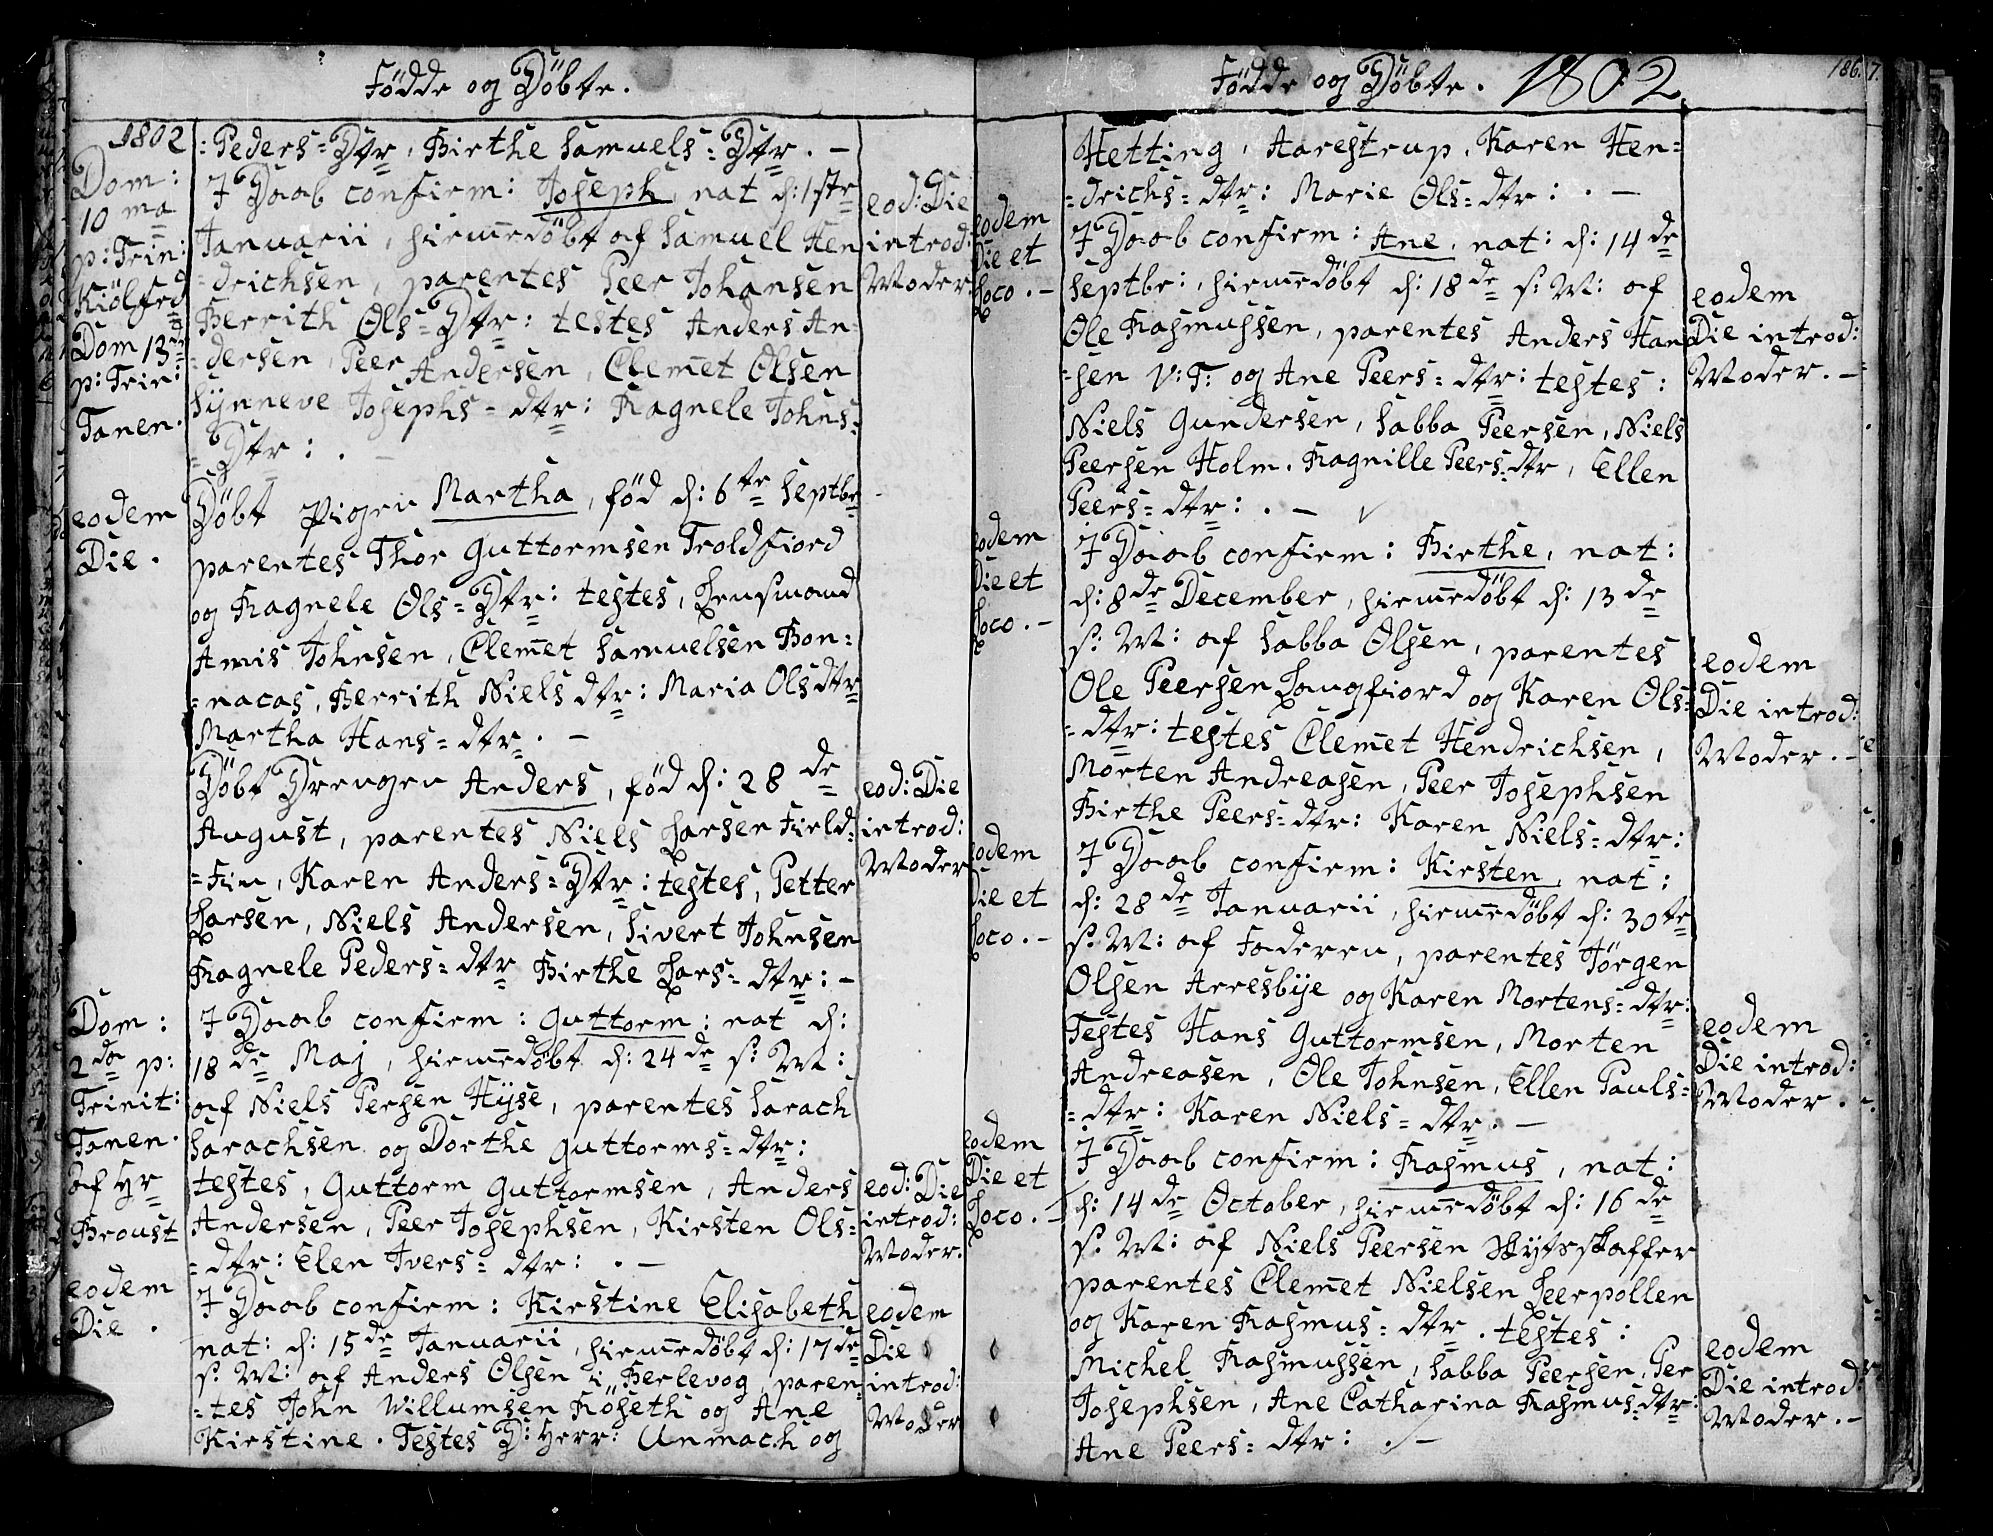 Födde og Döbte.
1802
: Peders = Dtr, Birthe Samuels = Dtr. -
Dom:
10 ma
p: Trin:
Kiölfrd
I Daab confirm: Joseph, nat d: 1ste
Januarii, hiemedöbt af Samuel Hen
= drichsen, parentes Peer Johansen
Berrith Ols = Dtr: testes Anders An-
= dersen, Peer Andersen, Clemet Olsen
Synneve Josephs = dtr: Ragnele Johns =
= Dtr: . -
eod: Die
introd:
Moder
Dom 13de
p: Trin:
Tanen.
eodem
Die.
Döbt Pigen Martha, föd d: 6te Septbr
parentes Thor Guttormsen Troldfiord
og Ragnele Ols = Dtr: testes, Lensmand
Amis Johnsen, Clemet Samuelsen Bon =
= nacas, Berrith Niels dtr: Maria Ols dtr
Martha Hans = dtr. -
Döbt Drengen Anders, föd d: 28 de
August, parentes Niels Larsen Field =
= Fin, Karen Anders = Dtr: testes, Petter
Larsen, Niels Andersen, Sivert Johnsen
Ragnele Peders = dtr Birthe Lars = dtr: -
eod: Die
introd:
Moder
Dom:
2da p:
Trinit:
Tanen.
af Hr
Broust
I Daab confirm: Guttorm: nat d:
18 de Maj, hiemedöbt d: 24 de s: M:
af Niels Persen Hyse, parentes Sarach
Sarachsen og Dorthe Guttorms = dtr:
testes, Guttorm Guttormsen, Anders
Andersen, Peer Josephsen, Kirsten Ols =
= dtr: Elen Ivers = dtr: . -
eod: Die
introd:
Moder.
eodem
Die.
I Daab confirm: Kirstine Elisabeth
nat: d: 15 de Januarii, hiemedöbt d: 17 de
s: M: af Anders Olsen i Berlevog, paren =
= tes John Willumsen Röseth og Ane
Kirstine. Testes D: Herr: Unmach og
eodem
Die
introd:
Moder
Födde og Döbte. 1802
186.
Hetting, Aarestrup, Karen Hen =
= drichs = dtr: Marie Ols = dtr: . -
eodem
Die et
Loco. -
I Daab confirm: Ane, nat: d: 14 de
Septbr:, hiemedöbt d: 18 de s: M: af
Ole Rasmussen, parentes Anders Han
= sen V: F: og Ane Peers = dtr: testes:
Niels Gundersen, Sabba Peersen, Niels
Peersen Holm. Ragnille Peers = dtr, Ellen
Peers = dtr: . -
eodem
Die introd:
Moder. -
eodem
Die et
Loco. -
I Daab confirm: Birthe, nat:
d: 8 de December, hiemedöbt d: 13 de
s: M: af Sabba Olsen, parentes
Ole Peersen Langfiord og Karen Ols =
= dtr: testes Clemet Hendrichsen,
Morten Andreasen, Peer Josephsen
Birthe Peers = dtr: Karen Niels = dtr:
eodem
Die introd:
Moder. -
eodem
Die et
Loco. -
I Daab confirm: Kirsten, nat:
d: 28 de Januarii, hiemedöbt d: 30te
s: M: af Faderen, parentes Jörgen
Olsen Arresbye og Karen Mortens = dtr:
Testes Hans Guttormsen, Morten
Andreasen, Ole Johnsen, Ellen Pauls =
= dtr: Karen Niels = dtr. -
eodem
Die introd:
Moder.
eodem
Die et
Loco. -
I Daab confirm: Rasmus, nat:
d: 14 de October, hiemedöbt d: 16 de
s: M: af Niels Peersen Skytsskaffer
parentes Clemet Nielsen Leerpollen
og Karen Rasmus = dtr. testes:
Michel Rasmussen, Sabba Peersen, Per
Josephsen, Ane Catharina Rasmus = dtr:
Ane Peers = dtr: . -
eodem
Die introd:
Moder. -